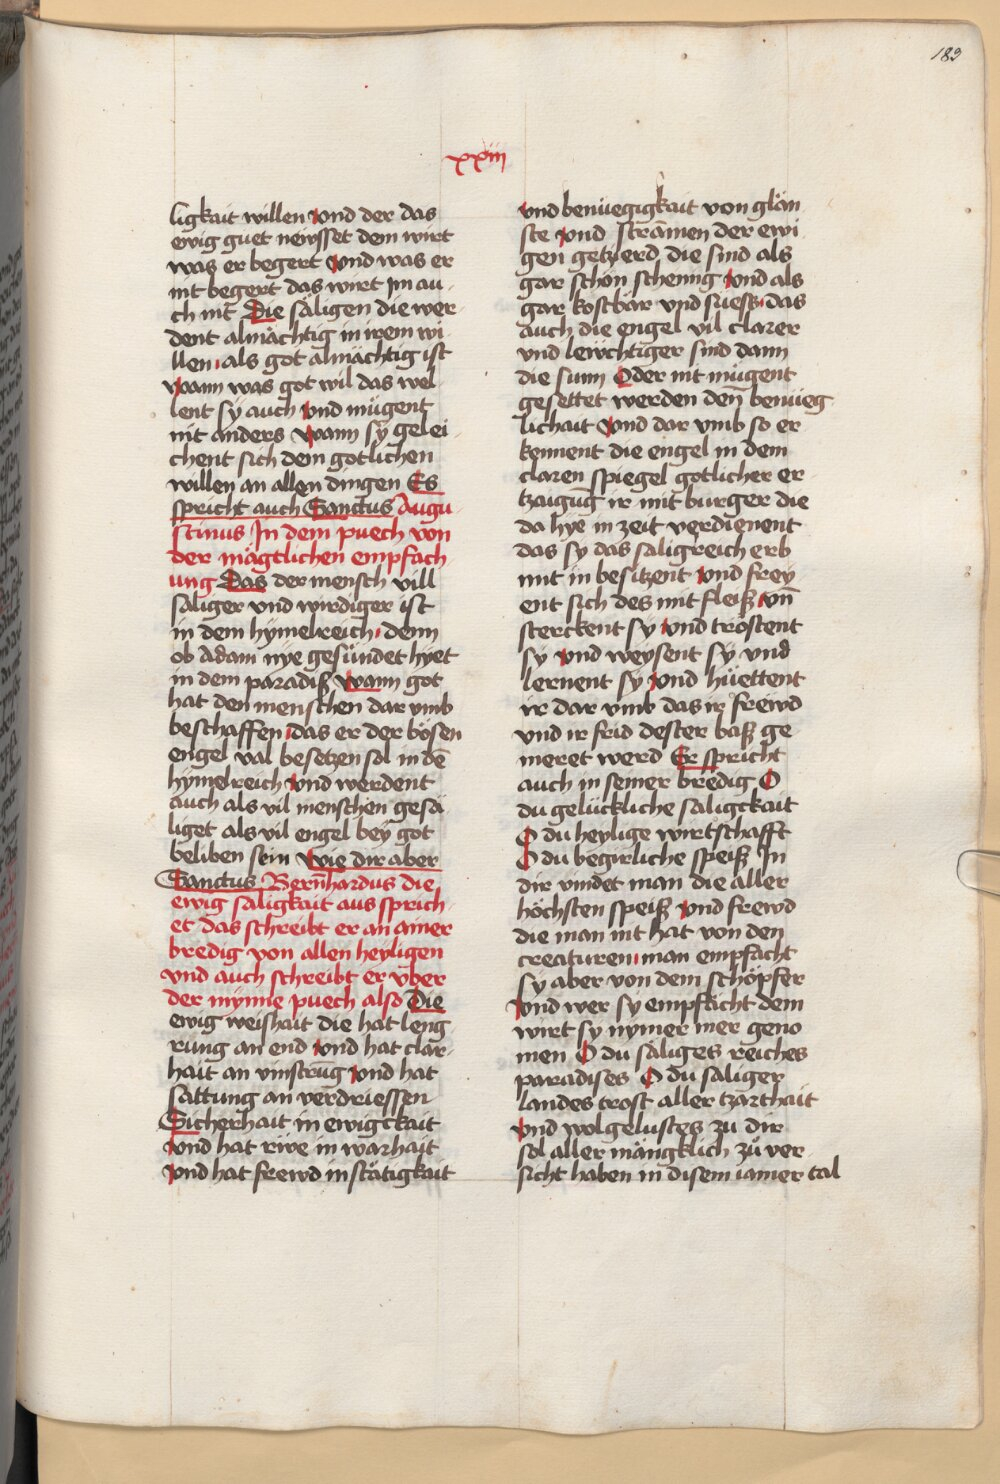 183
xxiii
ligkait willen vnd der das
ewig guet neusset dem wirt
was er begert vnd was er
nit begert das wirt im au
ch nit Die säligen die wer
dent almächtig in irem wi
llen als got almächtig ist
wann was got wil das wel
lent sy auch vnd mügent
nit anders wann sy gelei
chent sich dem gotlichen
willen an allen dingen Es
spricht auch Sanctus Augu
stinus In dem puech von
der mägtlichen empfach
ung Das der mensch vill
säliger vnd wirdiger ist
in dem hymelreich denn
ob adam nye gesündet hyet
in dem paradiß wann got
hat den menschen dar vmb
beschaffen das er der bösen
engel val besetzen sol in dē
hymelreich vnd werdent
auch als vil menschen gesä
liget als vil engel bey got
beliben sein wie dir aber
Sanctus Bern̄hardus die
ewig säligkait aus sprich
et das schreibt er an ainer
bredig von allen heyligen
vnd auch schreibt er vber
der mynne puech also Die
ewig weishait die hat leng
rung an end vnd hat clar
hait an vmstrūg vnd hat
sattung an verdriessen
Sicherhait in ewigckait
vnd hat riwe in warhait
vnd hat frewd in stätigkait
vnd benüegigkait von glän
ste vnd sträimen der ewi
gen getzierd die sind als
gar schön scheinig vnd als
gar kostbar vnd suess das
auch die engel vil clarer
vnd lewchtiger sind dann
die sunn Oder nit mügent
gesettet werden den̄ benüeg
lichait vnd dar vmb so er
kennent die engel in dem
claren spiegel gotlicher er
tzaigūg ir mit burger die
da hye in zeit verdienent
das sy das säligreich erb
mit in besitzent vnd frey
ent sich des mit fleiß vn̄
sterckent sy vnd tröstent
sy vnd weysent sy vnd
lernent sy vnd hüettent
ir dar vmb das ir frewd
vnd ir frid dester baß ge
meret werd Er spricht
auch in seiner bredig O
du gelückliche säligckait
O du heylige wirtschafft
O du begirliche speiß In
dir vindet man die aller
höchsten speiß vnd frewd
die man nit hat von den
creaturen man empfächt
sy aber von dem schöpfer
vnd wer sy empfächt dem
wirt sy nymer mer geno
men O du säliges reiches
paradises O du säliger
landes trost aller tzarthait
vnd wolgelustes zu dir
sol aller mängklich zu ver
sicht haben in disem iamer tal